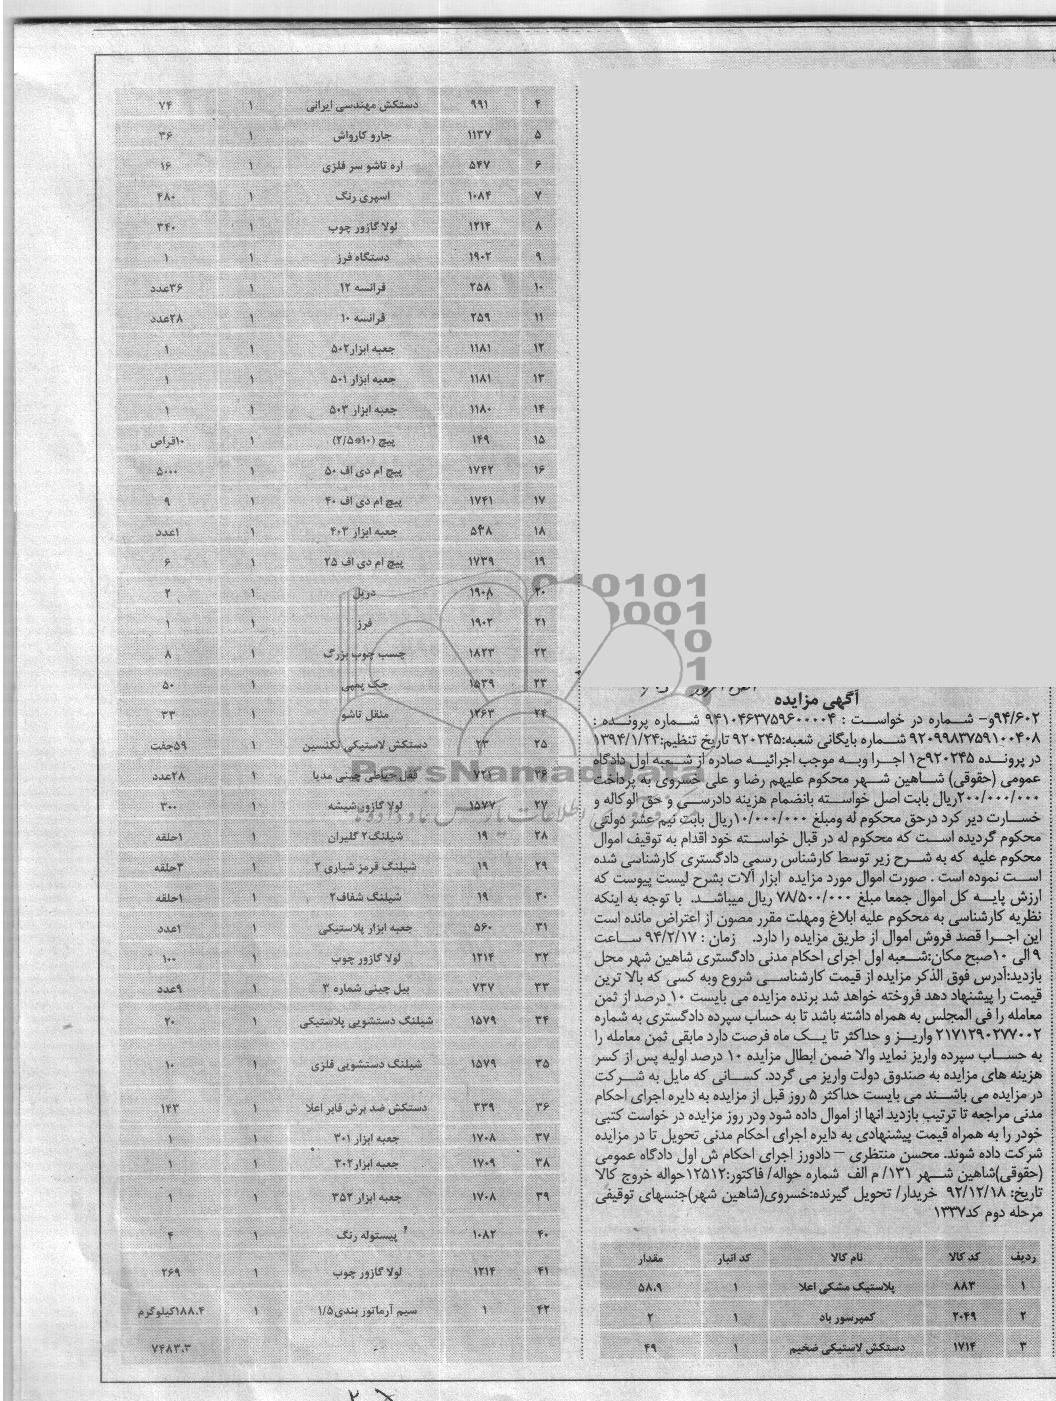 آگهی مزایده
۹۴/۶۰۲و- شماره در خواست : ۹۴۱۰۴۶۳۷۵۹۶۰۰۰۰۴ شماره پرونده :
۹۲۰۹۹۸۳۷۵۹۱۰۰۴۰۸ شماره بایگانی شعبه:۹۲۰۲۴۵ تاریخ تنظیم:۱۳۹۴/۱/۲۴
در پرونده ۹۲۰۲۴۵ح۱ اجرا وبه موجب اجرائیه صادره از شعبه اول دادگاه
عمومی (حقوقی) شاهین شهر محکوم علیهم رضا و علی خسروی به پرداخت
۲۰۰/۰۰۰/۰۰۰ریال بابت اصل خواسته بانضمام هزینه دادرسی و حق الوکاله و
خسارت دیر کرد درحق محکوم له ومبلغ ۱۰/۰۰۰/۰۰۰ریال بابت نیم عشر دولتی
محکوم گردیده است که محکوم له در قبال خواسته خود اقدام به توقیف اموال
محکوم علیه که به شرح زیر توسط کارشناس رسمی دادگستری کارشناسی شده
است نموده است . صورت اموال مورد مزایده ابزار آلات بشرح لیست پیوست که
ارزش پایه کل اموال جمعا مبلغ ۷۸/۵۰۰/۰۰۰ ریال میباشد. با توجه به اینکه
نظریه کارشناسی به محکوم علیه ابلاغ ومهلت مقرر مصون از اعتراض مانده است
این اجرا قصد فروش اموال از طریق مزایده را دارد. زمان : ۹۴/۲/۱۷ ساعت
۹ الی ۱۰صبح مکان:شعبه اول اجرای احکام مدنی دادگستری شاهین شهر محل
بازدید:آدرس فوق الذکر مزایده از قیمت کارشناسی شروع وبه کسی که بالا ترین
قیمت را پیشنهاد دهد فروخته خواهد شد برنده مزایده می بایست ۱۰ درصد از ثمن
معامله را فی المجلس به همراه داشته باشد تا به حساب سپرده دادگستری به شماره
۲۱۷۱۲۹۰۲۷۷۰۰۲ واریز و حداکثر تا یک ماه فرصت دارد مابقی ثمن معامله را
به حساب سپرده واریز نماید والا ضمن ابطال مزایده ۱۰ درصد اولیه پس از کسر
هزینه های مزایده به صندوق دولت واریز می گردد. کسانی که مایل به شرکت
در مزایده می باشند می بایست حداکثر ۵ روز قبل از مزایده به دایره اجرای احکام
مدنی مراجعه تا ترتیب بازدید انها از اموال داده شود ودر روز مزایده در خواست کتبی
خودر را به همراه قیمت پیشنهادی به دایره اجرای احکام مدنی تحویل تا در مزایده
شرکت داده شوند. محسن منتظری – دادورز اجرای احکام ش اول دادگاه عمومی
(حقوقی)شاهین شهر ۱۳۱/ م الف شماره حواله/ فاکتور:۱۲۵۱۲حواله خروج کالا
تاریخ: ۹۲/۱۲/۱۸ خریدار/ تحویل گیرنده:خسروی(شاهین شهر)جنسهای توقیفی
مرحله دوم کد۱۳۳۷
ردیف کد کالا نام کالا کد انبار مقدار
۱ ۸۸۳ پلاستیک مشکی اعلا ۱ ۵۸.۹
۲ ۲۰۴۹ کمپرسور باد ۱ ۲
۳ ۱۷۱۴ دستکش لاستیکی ضخیم ۱ ۴۹
۴ ۹۹۱ دستکش مهندسی ایرانی ۱ ۷۴
۵ ۱۱۳۷ جارو کارواش ۱ ۳۶
۶ ۵۴۷ اره تاشو سر فلزی ۱ ۱۶
۷ ۱۰۸۴ اسپری رنگ ۱ ۴۸۰
۸ ۱۲۱۴ لولا گازور چوب ۱ ۳۴۰
۹ ۱۹۰۲ دستگاه فرز ۱ ۱
۱۰ ۲۵۸ فرانسه ۱۲ ۱ ۳۶عدد
۱۱ ۲۵۹ فرانسه ۱۰ ۱ ۲۸عدد
۱۲ ۱۱۸۱ جعبه ابزار۵۰۲ ۱ ۱
۱۳ ۱۱۸۱ جعبه ابزار ۵۰۱ ۱ ۱
۱۴ ۱۱۸۰ جعبه ابزار ۵۰۳ ۱ ۱
۱۵ ۱۴۹ پیچ (۱۰*۲/۵) ۱ ۱۰قراص
۱۶ ۱۷۴۲ پیچ ام دی اف ۵۰ ۱ ۵۰۰۰
۱۷ ۱۷۴۱ پیچ ام دی اف ۴۰ ۱ ۹
۱۸ ۵۴۸ جعبه ابزار ۴۰۳ ۱ ۱عدد
۱۹ ۱۷۳۹ پیچ ام دی اف ۲۵ ۱ ۶
۲۰ ۱۹۰۸ دریل ۱ ۲
۲۱ ۱۹۰۲ فرز ۱ ۱
۲۲ ۱۸۲۳ چسب چوب بزرگ ۱ ۸
۲۳ ۱۵۳۹ جک پمپی ۱ ۵۰
۲۴ ۱۲۶۳ منقل تاشو ۱ ۳۳
۲۵ ۲۳ دستکش لاستیکی تکنسین ۱ ۵۹جفت
۲۶ ۷۲۱ قفل حیاطی چینی مدیا ۱ ۲۸عدد
۲۷ ۱۵۷۷ لولا گازور شیشه ۱ ۳۰۰
۲۸ ۱۹ شیلنگ۲ گلیران ۱ ۱حلقه
۲۹ ۱۹ شیلنگ قرمز شیاری ۲ ۱ ۳حلقه
۳۰ ۱۹ شیلنگ شفاف۲ ۱ ۱حلقه
۳۱ ۵۶۰ جعبه ابزار پلاستیکی ۱ ۱عدد
۳۲ ۱۲۱۴ لولا گازور چوب ۱ ۱۰۰
۳۳ ۷۳۷ بیل چینی شماره ۳ ۱ ۹عدد
۳۴ ۱۵۷۹ شیلنگ دستشویی پلاستیکی ۱ ۲۰
۳۵ ۱۵۷۹ شیلنگ دستشویی فلزی ۱ ۱۰
۳۶ ۳۳۹ دستکش ضد برش فابر اعلا ۱ ۱۴۳
۳۷ ۱۷۰۸ جعبه ابزار ۳۰۱ ۱ ۱
۳۸ ۱۷۰۹ جعبه ابزار۳۰۲ ۱ ۱
۳۹ ۱۷۰۸ جعبه ابزار ۳۵۲ ۱ ۱
۴۰ ۱۰۸۲ پیستوله رنگ ۱ ۴
۴۱ ۱۲۱۴ لولا گازور چوب ۱ ۲۶۹
۴۲ ۱ سیم آرماتور بندی۱/۵ ۱ ۱۸۸.۴کیلوگرم
۷۴۸۳.۳
ParsNamadData